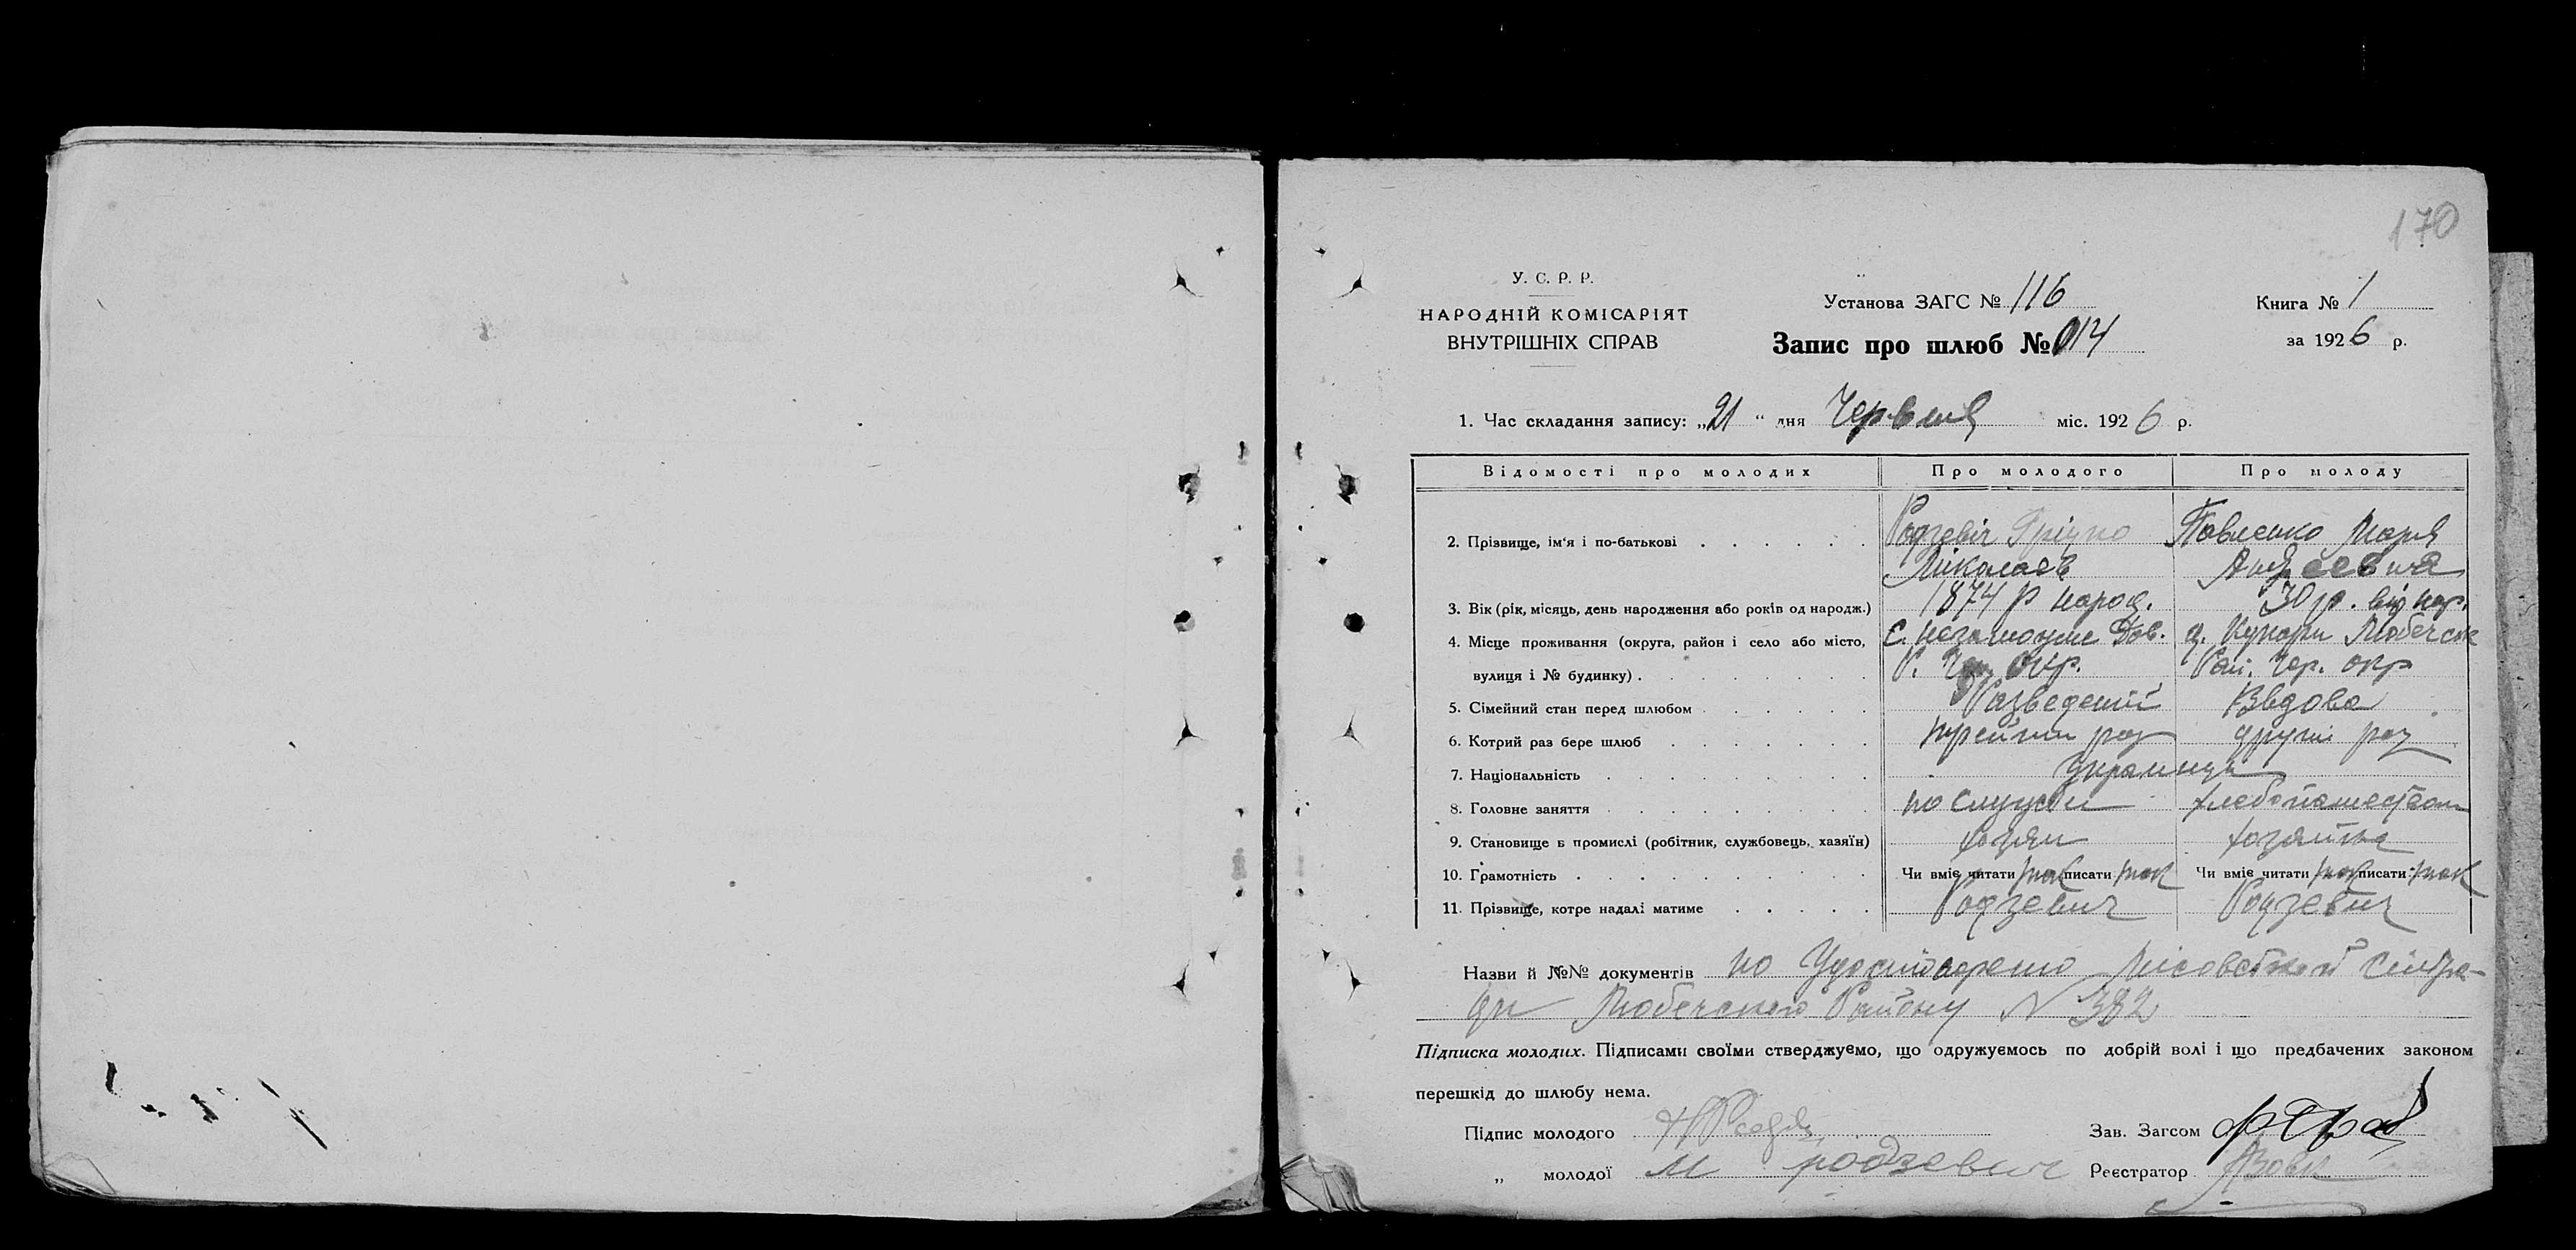 170
У. С. Р. Р.
НАРОДНІЙ КОМІСАРІЯТ
ВНУТРІШНІХ СПРАВ
Установа ЗАГС № 116
Запис про шлюб № 014
Книга № 1
за 1926 р.
1. Час складання запису: „21" дня Червня міс. 1926 р.
Відомості про молодих Про молодого Про молоду
2. Прізвище, ім'я і по-батькові Родзевіч Павленко Марія
Ніколаєв
3. Вік (рік, місяць, день народження або років од народж.) 1874 р народ. 30 р. від нар.
4. Місце проживання (округа, район і село або місто, Любечск
вулиця і № будинку) Р. окр. Рай. Чер. окр
5. Сімейний стан перед шлюбом Разведеній Вдова
6. Котрий раз бере шлюб раз другий раз
7. Національність Українци
8. Головне заняття по службі
9. Становище в промислі (робітник, службовець, хазяїн) хозяин хозяйка
10. Грамотність Чи вміє читати так писати так Чи вміє читати так писати: так
11. Прізвище, котре надалі матиме Родзевич Родзевич
Назви й №№ документів по
ди Любечского Району N 382
Підписка молодих. Підписами своїми стверджуємо, що одружуємось по добрій волі і що предбачених законом
перешкід до шлюбу нема.
Підпис молодого
Зав. Загсом
„ молодої М родзевич
Реєстратор